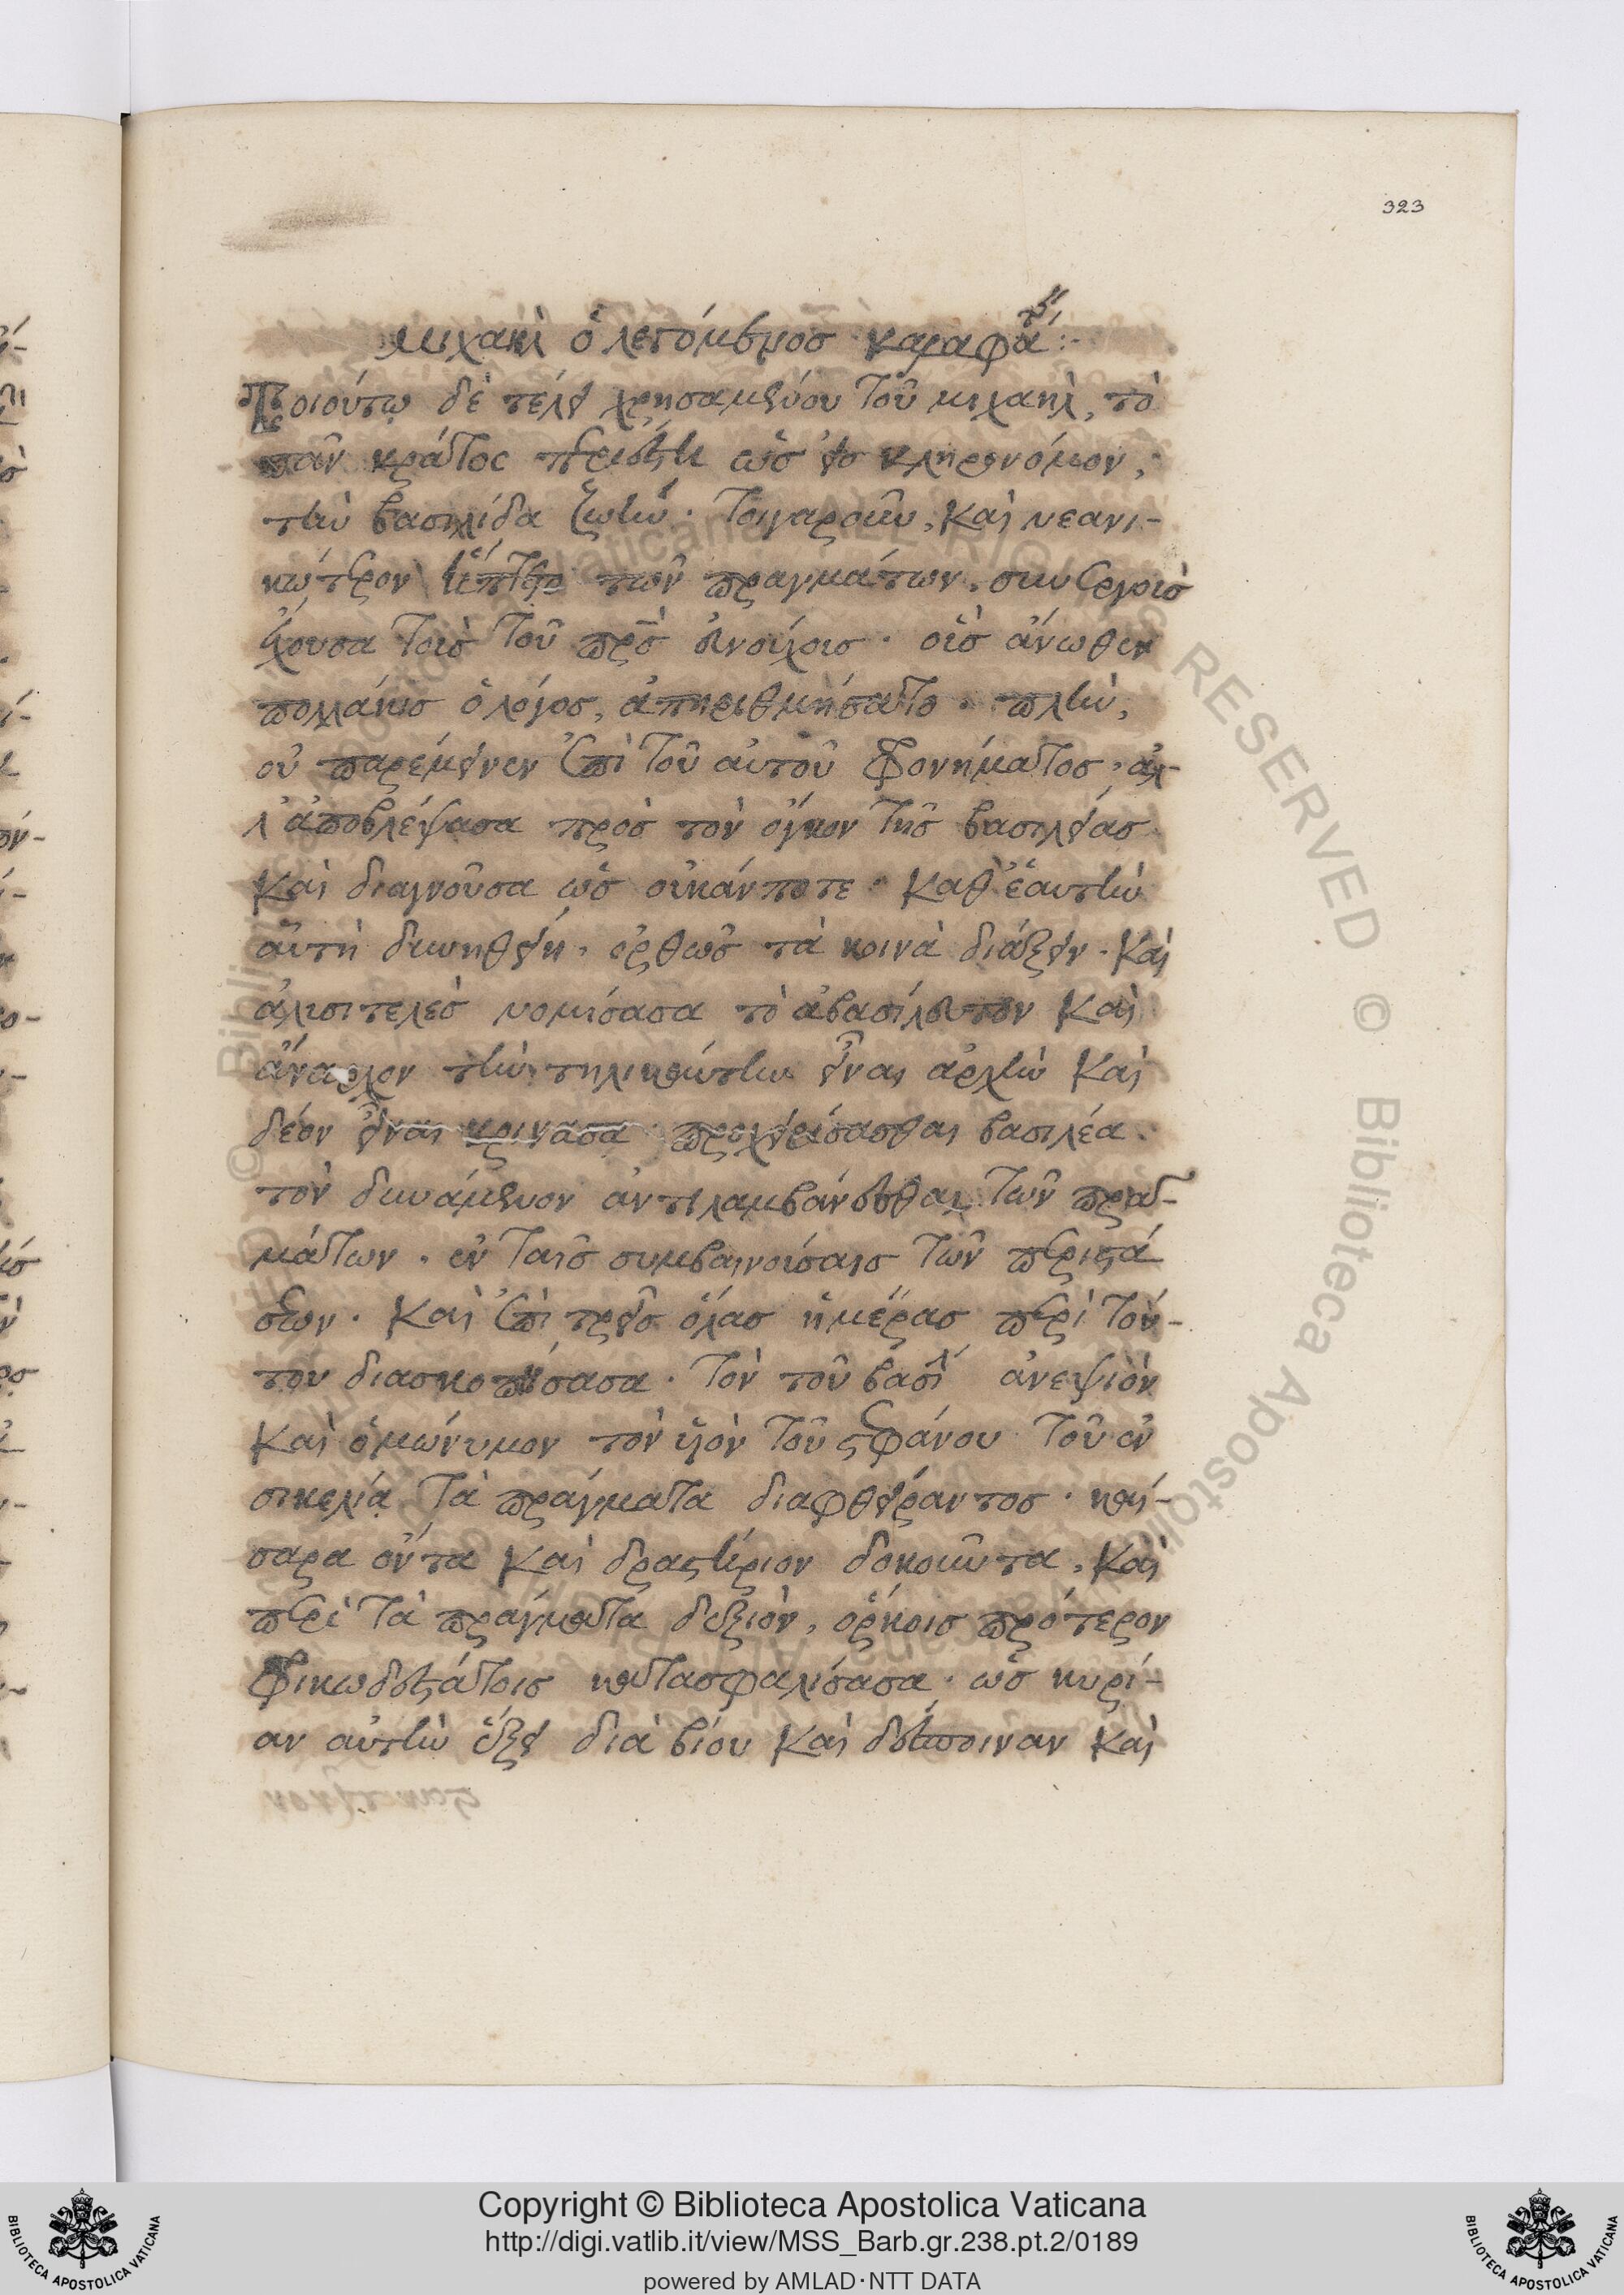 323
μιχαὴλ ὁ λεγόμενος καραφά:
Τοιούτω δὲ τέλει χρησαμένου τοῦ μιχαὴλ, τὸ
πᾶν κράτος περιέστη ὡς εἰς κληρονόμον,
τὴν βασιλίδα ζωήν. τοιγαροῦν, καὶ νεανι-
κώτερον ἥπτετο τῶν πραγμάτων. συνεργοῖς
ἔχουσα τοῖς τοῦ πρς εὐνούχοις. οἷς ἄνωθεν
πολλάκις ὁ λόγος, ἀπηριθμήσατο. πλὴν,
οὐ παρέμεινεν ἐπὶ τοῦ αὐτοῦ φρονήματος, ἀλ-
λ' ἀποβλέψασα πρὸς τὸν ὄγκον τῆς βασιλείας
καὶ διαγνοῦσα ὡς οὐκάν ποτε καθ' ἑαυτὴν
αὐτὴ δυνηθείη, ὀρθῶς τὰ κοινὰ διάξειν. καὶ
ἀλυσιτελὲς νομίσασα τὸ ἀβασίλευτον καὶ
ἄναρχον τὴν τηλικαύτην εἶναι ἀρχὴν καὶ
δέον εἶναι κρίνασα προχειρίσασθαι βασιλέα
τὸν δυνάμενον ἀντιλαμβάνεσθαι τῶν πραγ-
μάτων. ἐν ταῖς συμβαινούσαις τῶν περιστά
σεων. καὶ ἐπὶ τρεῖς ὅλας ἡμέρας περὶ τού-
του διασκοπήσασα. τὸν τοῦ βασιλ ἀνεψιὸν
καὶ ὁμώνυμον τὸν υἱὸν τοῦ στεφάνου τοῦ ἐν
σικελία τὰ πράγματα διαφθείραντος. καί-
σαρα ὄντα καὶ δραστήριον δοκοῦντα, καὶ
περὶ τὰ πράγματα δεξιὸν, ὅρκοις πρότερον
φρικωδεστάτοις κατασφαλίσασα. ὡς κυρί-
αν αὐτὴν ἕξει διὰ βίου καὶ δέσποιναν καὶ
Copyright © Biblioteca Apostolica Vaticana
http://digi.vatlib.it/view/MSS_Barb.gr.238.pt.2/0189
powered by AMLAD·NTT DATA